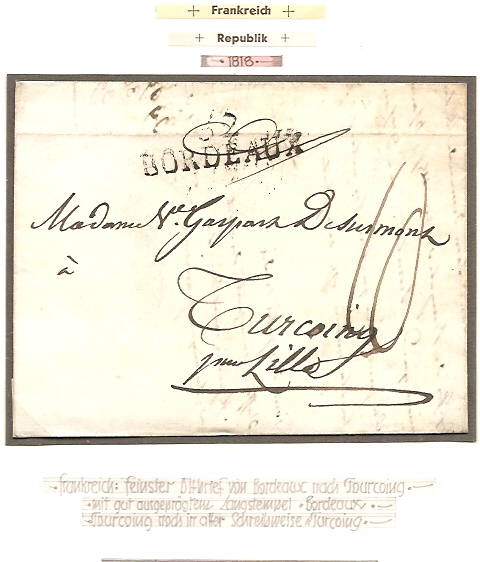 + Frankreich +
+ Republik +
· 1818 ·
32
BORDEAUX
Madame Ve. Gaspard Desurmont
à
Turcoing
pour Lille
· Frankreich: feinster Altbrief von Bordeaux nach Tourcoing. –
· mit gut ausgeprägtem Langstempel · Bordeaux ·
· Tourcoing noch in alter Schreibweise Turcoing. –